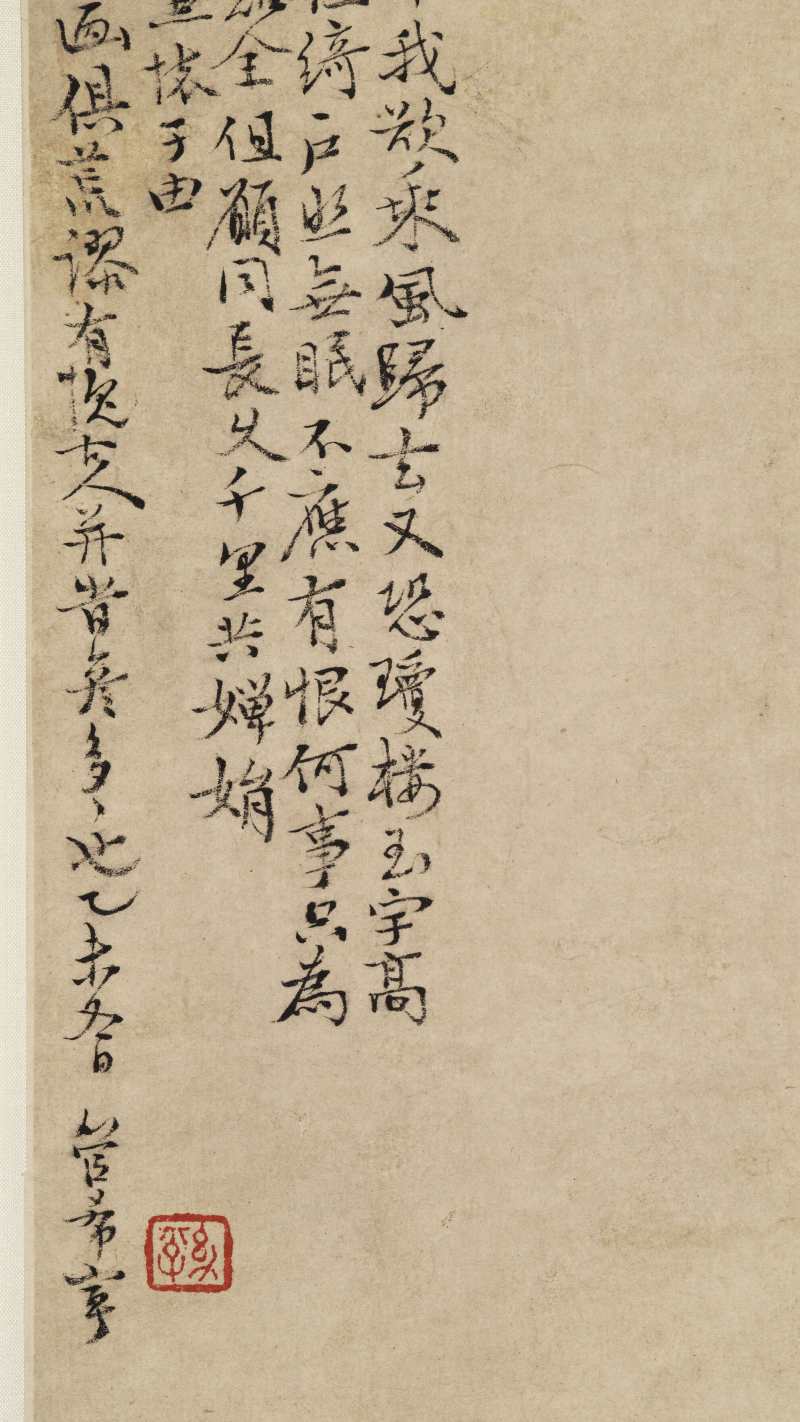 我欲乘風歸去又恐瓊楼玉宇高
綺戶照無眠不應有恨何事只為
全但願同長久千里共嬋娟
懷子由
画俱荒謬有愧古人并昔彥多〻也乙未冬日 管希寧